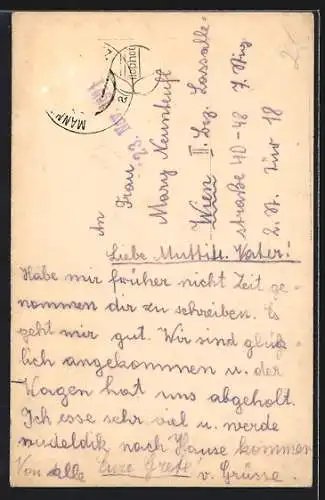 An
Frau
Mary Neunteufl
Wien II. Bez. Lassalle-
straße 40-48 7. Stig.
2. St. Tür 18
23. Nov.
MANN
Liebe Mutti u. Vater!
Habe mir früher nicht Zeit ge-
nommen dir zu schreiben. Es
geht mir gut. Wir sind glück-
lich angekommen u. der
Wagen hat uns abgeholt.
Ich esse sehr viel u. werde
nudeldik nach Hause kommen
Von alle Eure Grete v. Grüsse.